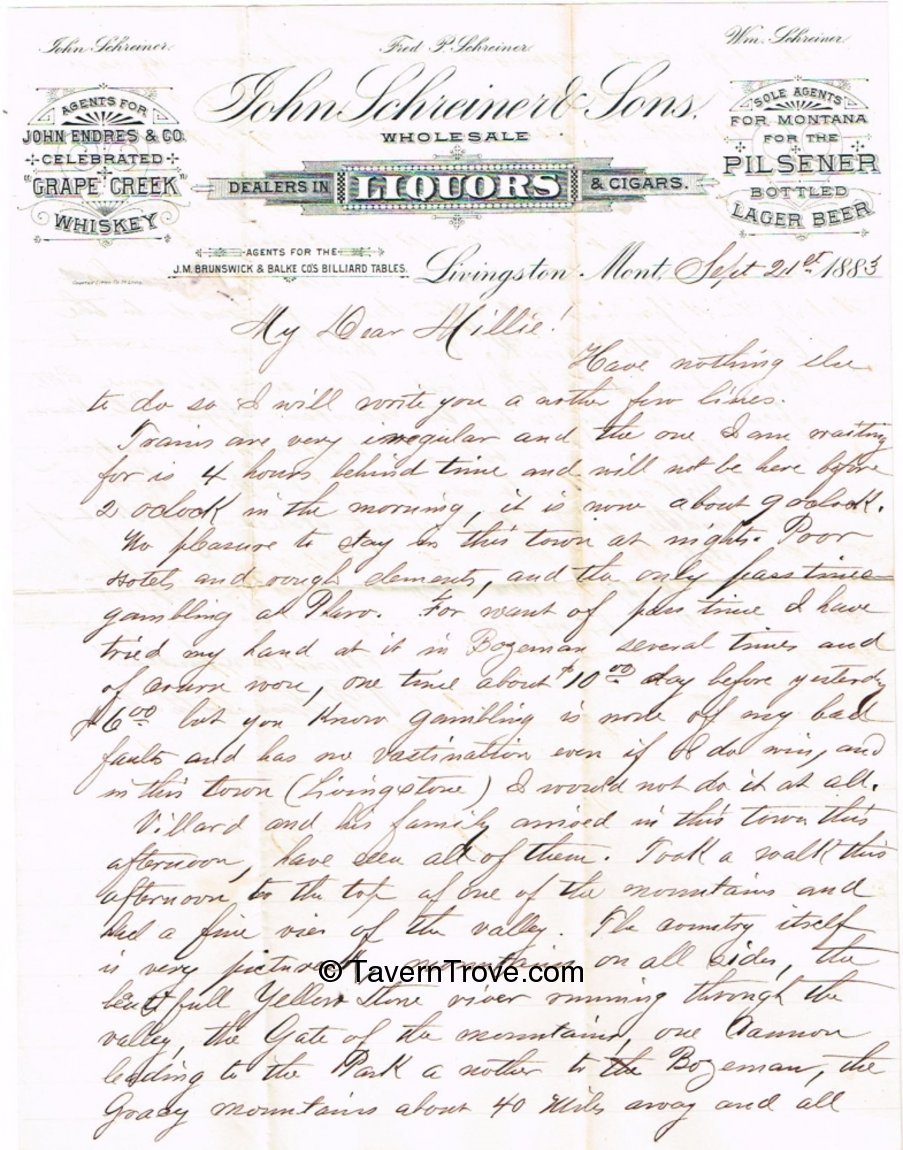 John Schreiner. Fred P. Schreiner. Wm. Schreiner.
John Schreiner & Sons.
WHOLESALE
DEALERS IN LIQUORS & CIGARS.
AGENTS FOR
JOHN ENDRES & CO.
CELEBRATED
"GRAPE CREEK"
WHISKEY
SOLE AGENTS
FOR MONTANA
FOR THE
PILSENER
BOTTLED
LAGER BEER
AGENTS FOR THE
J.M. BRUNSWICK & BALKE CO'S BILLIARD TABLES.
Livingston Mont. Sept 21st 1883
My Dear Millie!
Have nothing else
to do so I will write you a nother few lines.
Trains are very irregular and the one I am waiting
for is 4 hours behind time and will not be here before
2 oclock in the morning, it is now about 9 oclock.
No pleasure to stay in this town at nights. Poor
Hotels and rough elements, and the only passtime
gambling at Pharo. For want of pass time I have
tried my hand at it in Bozeman several times and
of course won, one time about $10.00 day before yesterday
$6.00 but you know gambling is none of my bad
faults and has no vastination even if I do win, and
in this town (Livingstone) I would not do it at all.
Villard and his family arrived in this town this
afternoon, have seen all of them. Took a walk this
afternoon to the top of one of the mountains and
had a fine view of the valley. The country itself
is very mountains on all sides, the
© TavernTrove.com
beautifull Yellow Stone river running through the
valley, the Gate of the mountains, one Cannon
leading to the Park a nother to the Bozeman, the
mountains about 40 Miles away and all